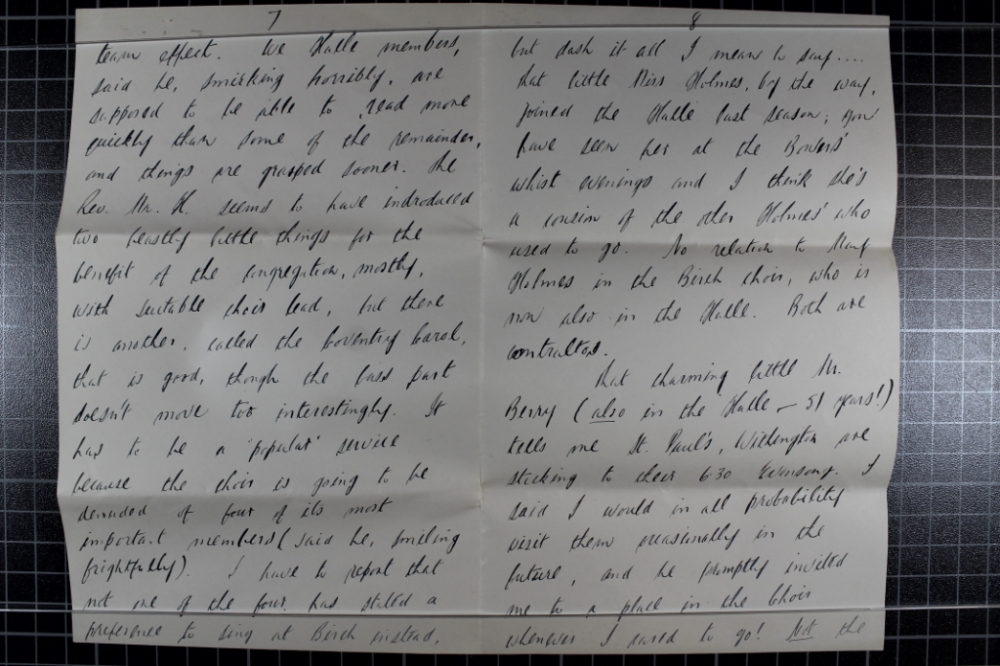 7
team effect. We Halle members,
said he, smirking horribly, are
supposed to be able to read more
quickly than some of the remainder,
and things are grasped sooner. The
Rev. Mr. H. seems to have introduced
two beastly little things for the
benefit of the congregation, mostly,
with suitable choir lead, but there
is another, called the Coventry Carol,
that is good, though the bass part
doesn't move too interestingly. It
has to be a 'popular' service
because the choir is going to be
denuded of four of its most
important members (said he, smiling
frightfully). I have to report that
not one of the four has stated a
preference to sing at Birch instead,
8
but dash it all I mean to say....
that little Miss Holmes, by the way,
joined the Halle last season; you
have seen her at the Bowers'
whist evenings and I think she's
a cousin of the other Holmes' who
used to go. No relation to Mary
Holmes in the Birch choir, who is
now also in the Halle. Both are
contraltos.
That charming little Mr.
Berry (also in the Halle – 51 years!)
tells me St. Paul's, Withington are
sticking to their 6.30 Evensong. I
said I would in all probability
visit them occasionally in the
future, and he promptly invited
me to a place in the Choir
whenever I cared to go! Not the